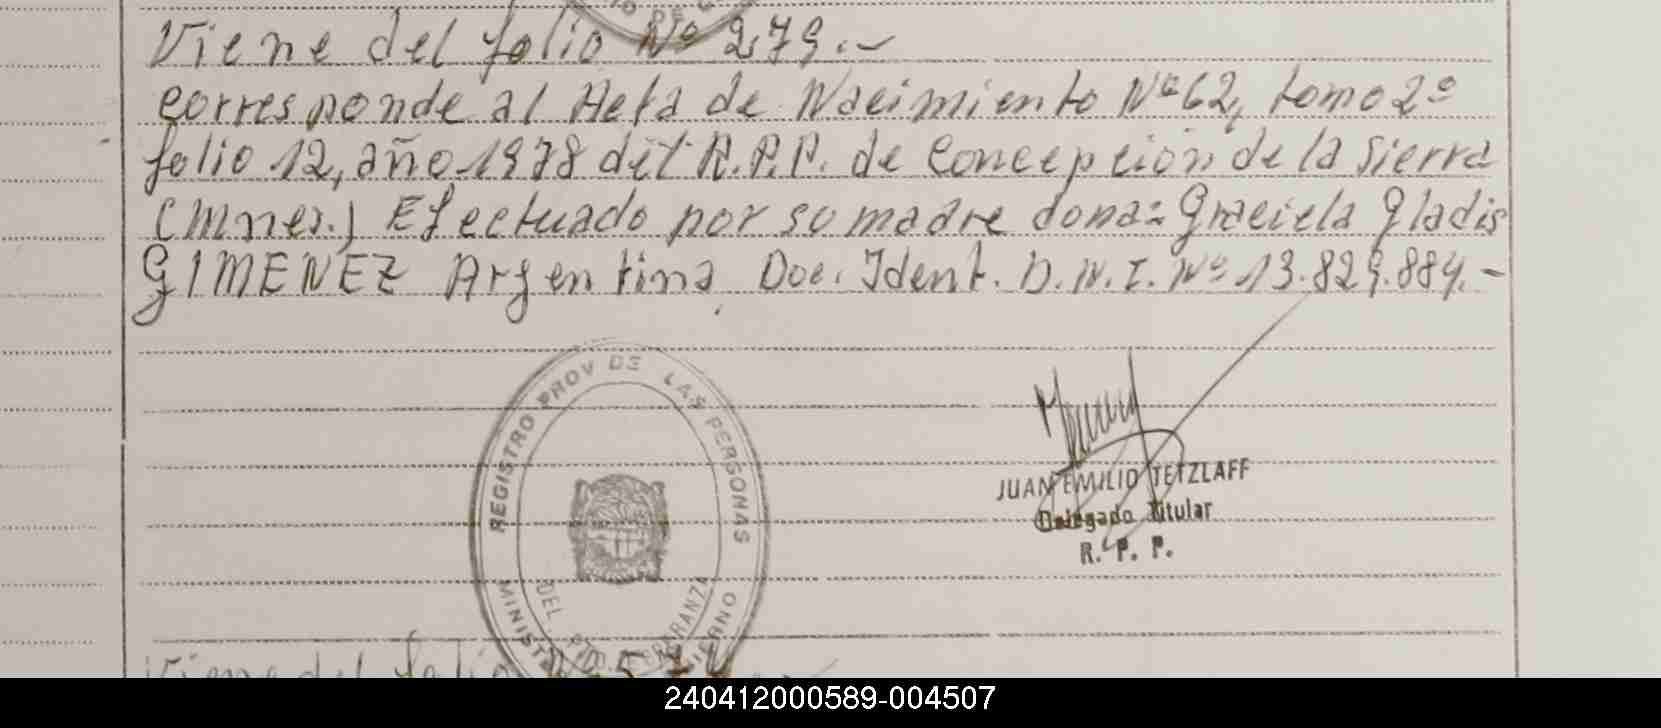 Viene del folio Nº 279.-
corresponde al Acta de Nacimiento Nº 62, tomo 2º
folio 12, año 1978 del R.P.P. de Concepción de la Sierra
(Mnes.) Efectuado por su madre dona: Graciela Gladis
GIMENEZ Argentina Doc. Ident. D.N.I. Nº 13.829.884.-
REGISTRO PROV DE LAS PERSONAS
DEL
JUAN EMILIO TETZLAFF
Delegado Titular
R. P. P.
Viene del folio
240412000589-004507